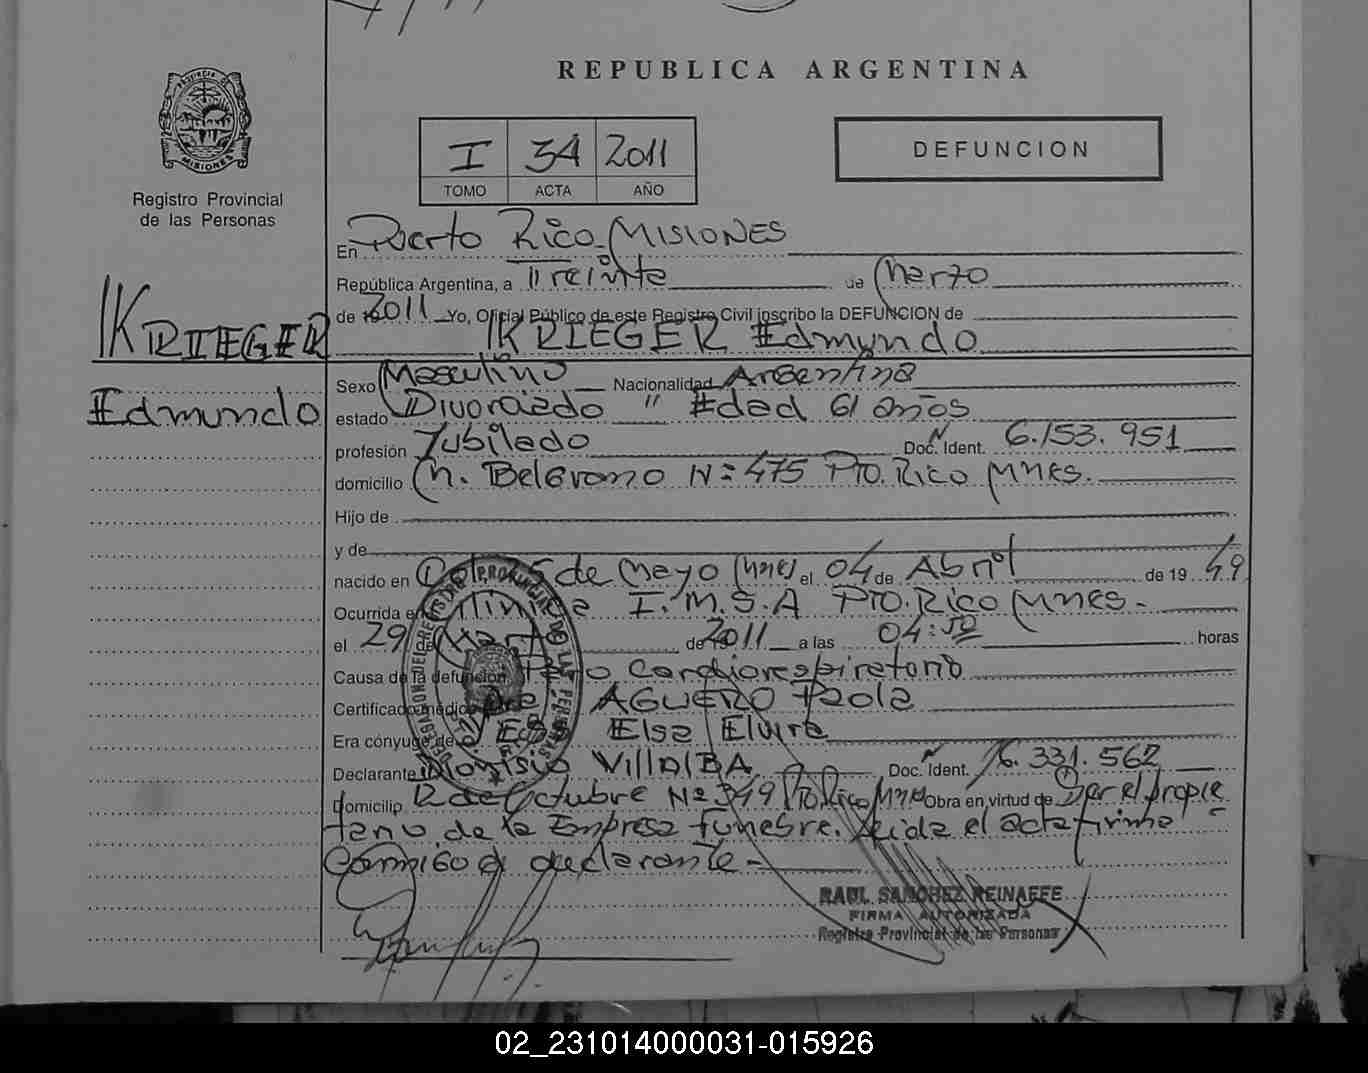 REPUBLICA ARGENTINA
PROVINCIA DE
MISIONES
Registro Provincial
de las Personas
I 34 2011
TOMO ACTA AÑO
DEFUNCION
KRIEGER
Edmundo
En Puerto Rico - MISIONES
República Argentina, a Treinta de Marzo
de 2011 Yo, Oficial Público de este Registro Civil inscribo la DEFUNCION de
KRIEGER Edmundo
Sexo Masculino Nacionalidad Argentina
estado Divorciado " Edad 61 años
profesión Jubilado Doc. Ident. 6.153.951
domicilio M. Belgrano N= 475 Pto. Rico Mnes.
Hijo de
y de
nacido en de Mayo Mnes el 04 de Abril de 19 49
Ocurrida en Clinica I.M.S.A Pto. Rico Mnes.
el 29 de Marzo de 2011 a las 04:50 horas
Causa de la defunción Paro Cardiorespiratorio
Certificado médico Dra AGUERO Paola
Era cónyuge de Elsa Elvira
Declarante Dionisio VIllAlBA Doc. Ident. 16.331.562
Domicilio 12 de Octubre Nº 349 Pto Rico Mnes Obra en virtud de Ser el propie
tario de la Empresa Funebre. Leida el acta firma
conmigo el declarante -
RAUL SANCHEZ REINAFFE
FIRMA AUTORIZADA
Registro Provincial de las Personas
02_231014000031-015926